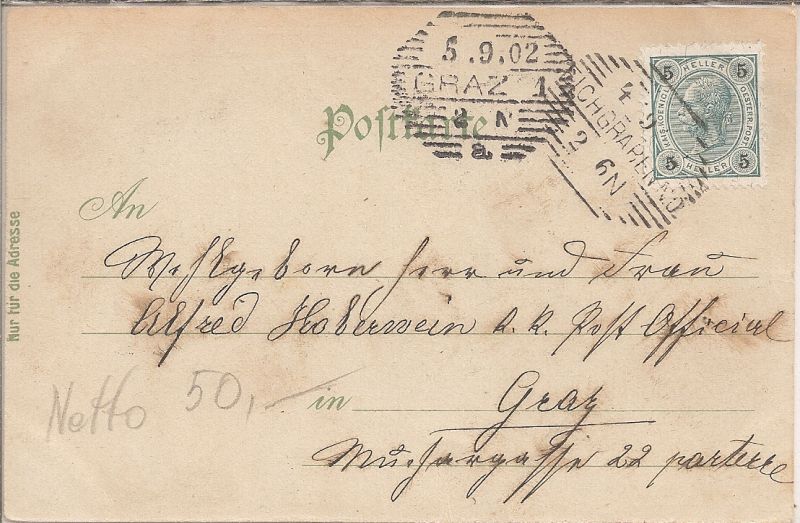 5.9.02
GRAZ 1
2 N
a
EICHGRABEN N.Ö.
4 9
2 6N
5 HELLER 5
KAIS. KOENIGL. OESTERR. POST
5 HELLER 5
Postkarte
Nur für die Adresse
An
Wohlgeborn Herr und Frau
Alfred Haberwein k. k. Post Official
Netto 50,-
in Graz
Muchargasse 22 parterre